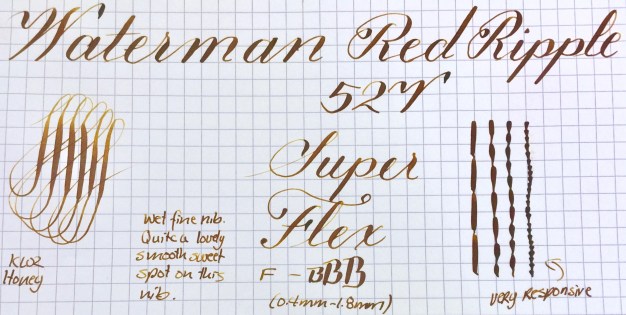 Waterman Red Ripple
52V
Super
Flex
F - BBB
(0.4mm-1.8mm)
KWZ
Honey
Wet fine nib.
Quite a lovely
smooth sweet
spot on this
nib.
very responsive